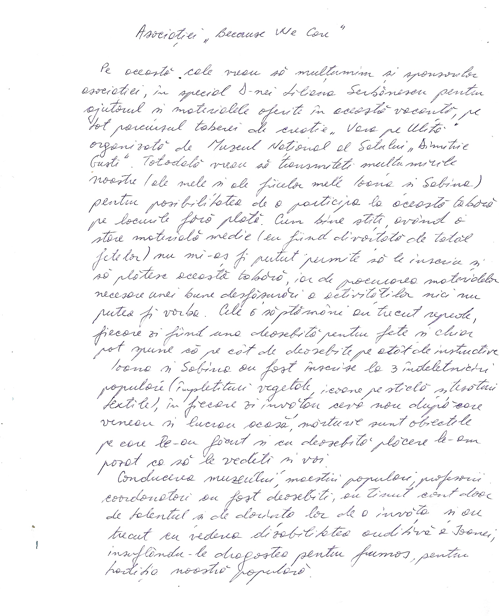 Asociației „Because We Care"
Pe această cale vreau să mulțumim și sponsorilor
asociației, în special D-nei Liliana Serbănescu pentru
ajutorul și materialele oferite în această vacanță, pe
tot parcursul taberei de creație „Vara pe Uliță"
organizată de Muzeul Național al Satului „Dimitrie
Gusti". Totodată vreau să transmiteți mulțumirile
noastre (ale mele și ale fiicelor mele Ioana și Sabina)
pentru posibilitatea de a participa la această tabără
pe locurile fără plată. Cum bine știți, având o
stare materială medie (eu fiind divorțată de tatăl
fetelor) nu mi-aș fi putut permite să le înscriu și
să plătesc această tabără, iar de procurarea materialelor
necesare unei bune desfășurări a activităților nici nu
putea fi vorba. Cele 6 săptămâni au trecut repede,
fiecare zi fiind una deosebită pentru fete și chiar
pot spune că pe cât de deosebite pe atât de instructive
Ioana și Sabina au fost înscrise la 3 îndeletniciri
populare (împletituri vegetale, icoane pe sticlă și țesături
textile), în fiecare zi învățau ceva nou după care
veneau și lucrau acasă, mărturie sunt obiectele
pe care le-au făcut și cu deosebită plăcere le-am
pozat ca să le vedeți și voi.
Conducerea muzeului, maeștrii populari, profesorii
coordonatori au fost deosebiți, au ținut cont doar
de talentul și de dorința lor de a învăța și au
trecut cu vederea dizabilitatea auditivă a Ioanei,
insuflându-le dragostea pentru frumos, pentru
tradiția noastră populară.